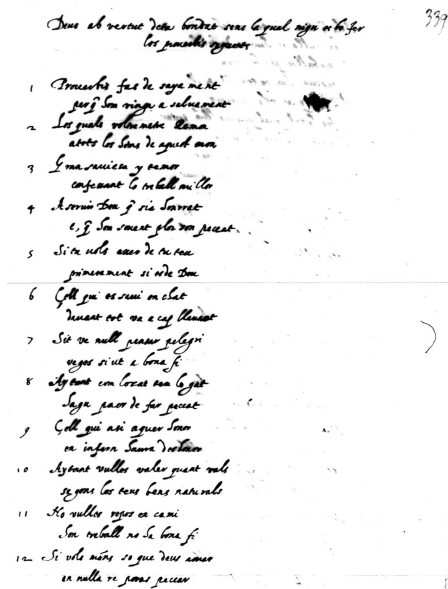 339
Deus ab vertut de ta bondat sens la qual nigu es bo fer
los proverbis seguents
1 Proverbis fas de saga ment
per q̃ hom vinga a salvament
2 Los quals
a tots los homs de aquest mon
3 saviesa y
lo treball millor
4 A servir Deu q̃ sia honrat
e, q̃ hom peccat
5 Si tu vols aver de tu teu
primerament si es de Deu
6 Çell qui es savi
devant tot va a cap
7 Sit ve null pensar pelegri
veges si ut a bona fi
8 Aytant com lo rat tem lo gat
hages paor de fer peccat
9 Çell qui asi aquer honor
en infern haura deshonor
10 Aytant vulles valer quant vals
segons los teus bens naturals
11 No vulles repos en cami
hon treball no ha bona fi
12 Si vols mẽns so que deus amar
en nulla re poras peccar